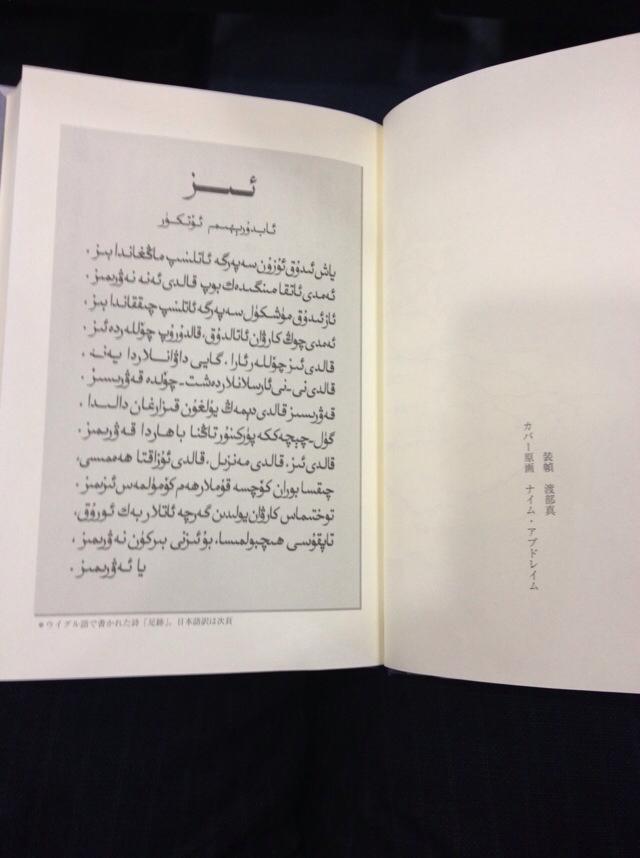 ئىز
ئابدۇرېھىم ئۆتكۈر
ياش ئىدۇق ئۇزۇن سەپەرگە ئاتلىنىپ ماڭغاندا بىز،
ئەمدى ئاتقا مىنگىدەك بوپ قالدى ئەنە نەۋرىمىز.
ئاز ئىدۇق مۈشكۈل سەپەرگە ئاتلىنىپ چىققاندا بىز،
ئەمدى چوڭ كارۋان ئاتالدۇق، قالدۇرۇپ چۆللەردە ئىز.
قالدى ئىز چۆللەر ئارا، گايى داۋانلاردا يەنە،
قالدى نى-نى ئارسلانلار دەشت-چۆلدە قەۋرىسىز.
قەۋرىسىز قالدى دېمەڭ يۇلغۇن قىزارغان دالىدا،
گۈل-چېچەككە پۈركىنۇر تاڭنا باھاردا قەۋرىمىز.
قالدى ئىز، قالدى مەنزىل، قالدى ئۇزاقتا ھەممىسى،
چىقسا بوران كۆچسە قۇملار ھەم كۆمۈلمەس ئىزىمىز.
توختىماس كارۋان يولىدىن گەرچە ئاتلار بەك ئورۇق،
تاپقۇسى ھېچبولمىسا، بۇ ئىزنى بىركۈن نەۋرىمىز،
يا ئەۋرىمىز.
＊ウイグル語で書かれた詩「足跡」。日本語訳は次頁
装幀　渡部真
カバー原画　ナイム・アブドレイム